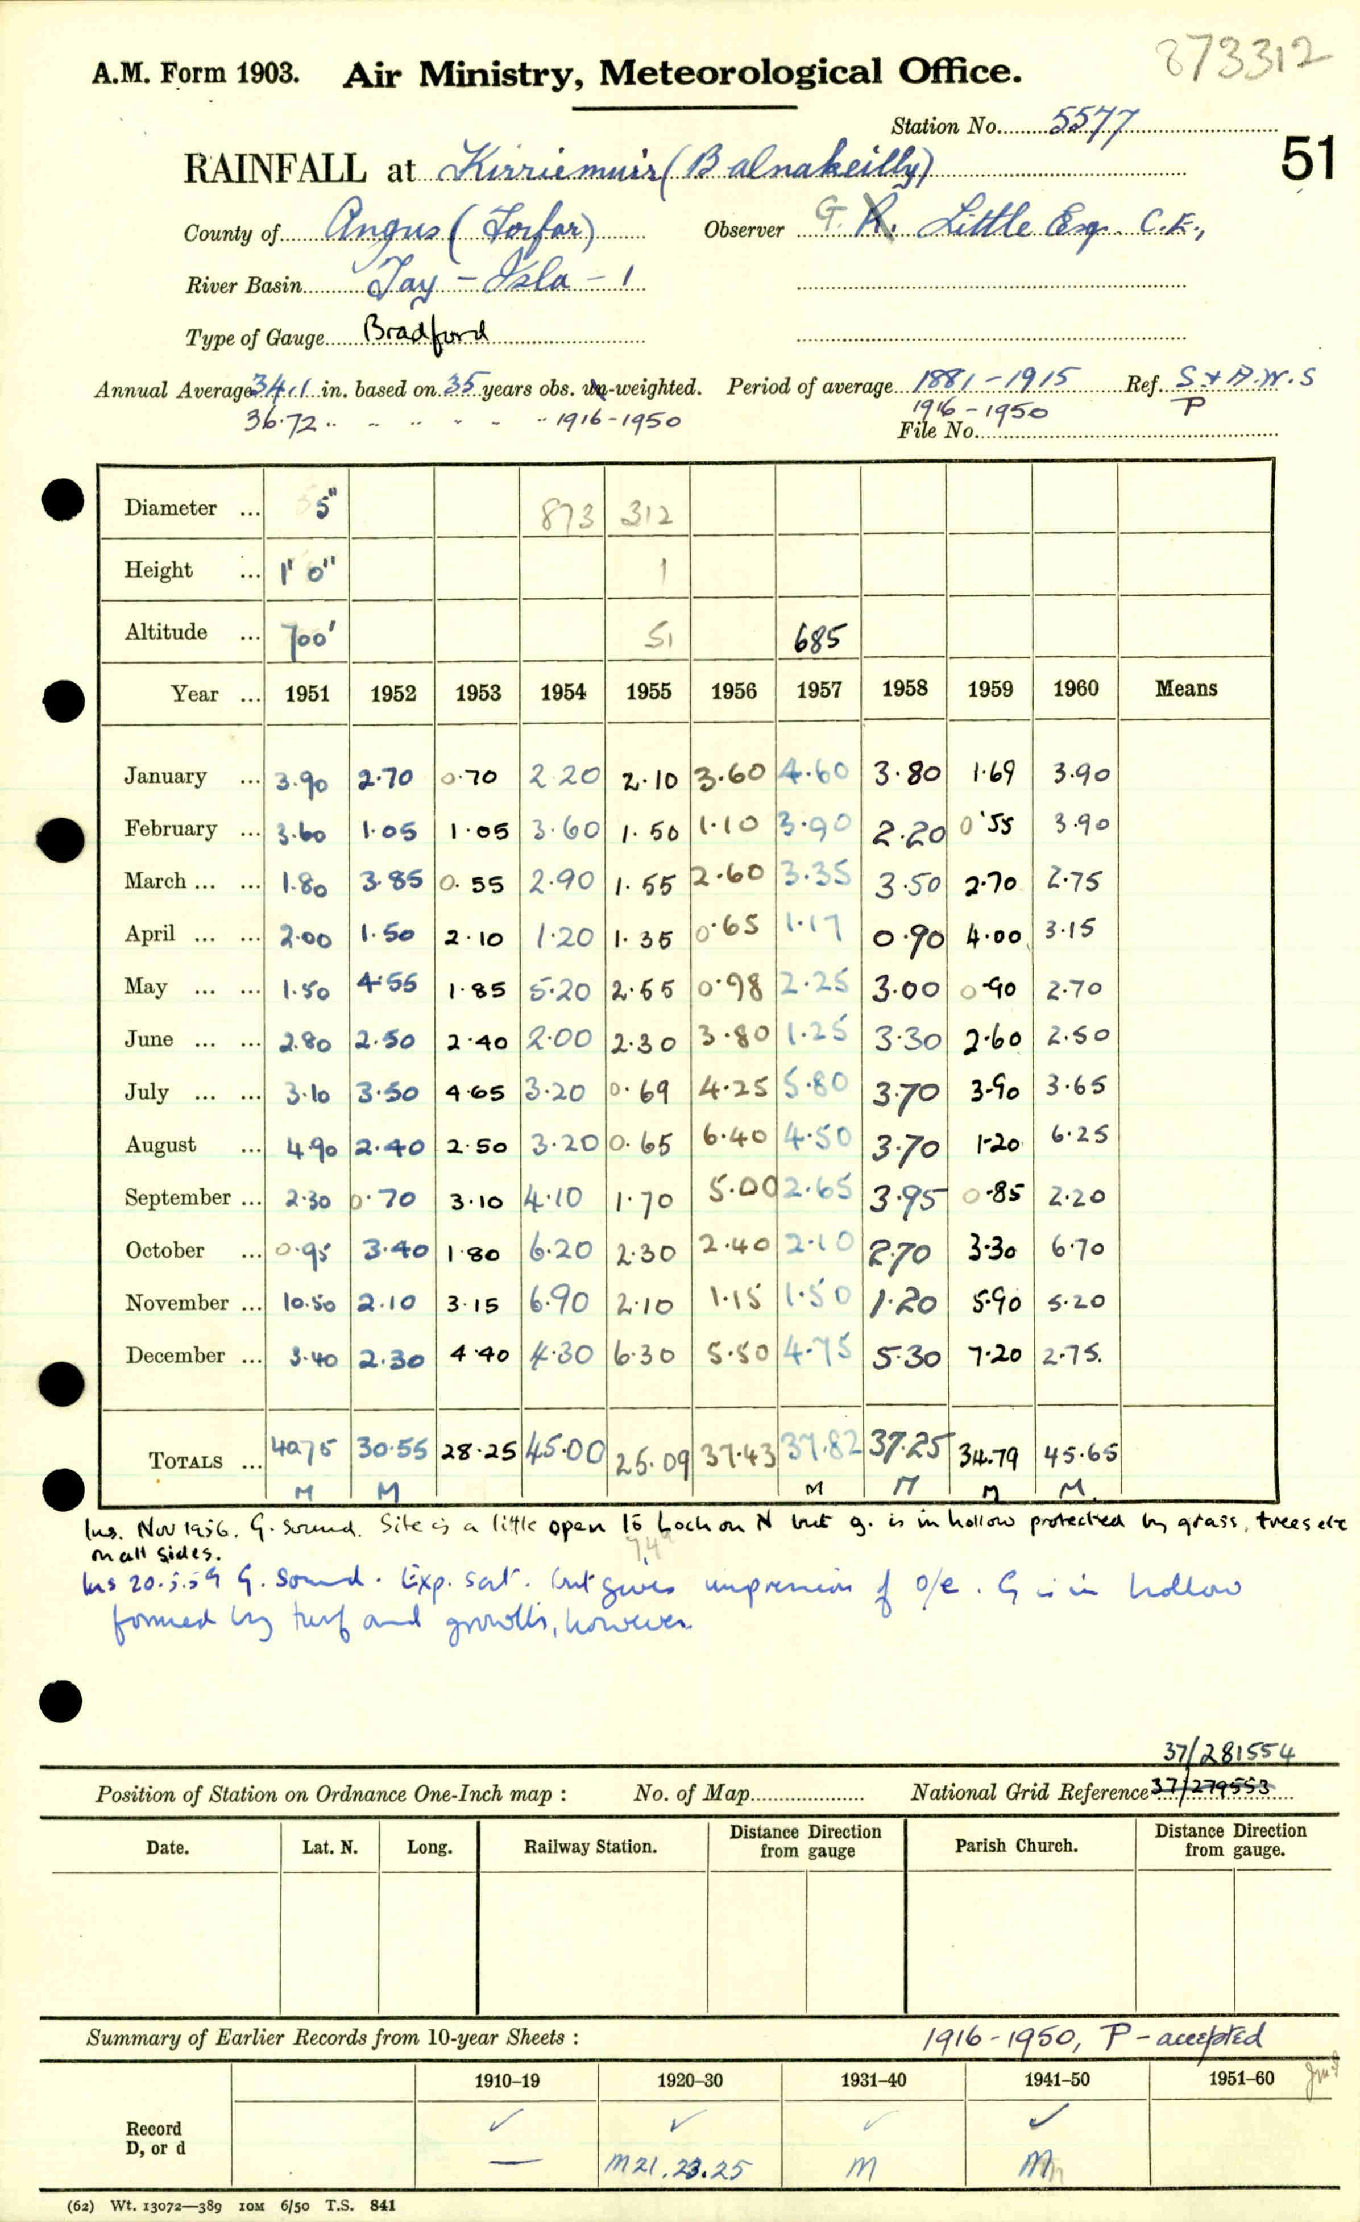 873312
A.M. Form 1903. Air Ministry, Meteorological Office.
Station No. 5577
51
RAINFALL at Kirriemuir (Balnakeilly)
County of Angus (Forfar) Observer G. R. Little Esq. C.E.,
River Basin Tay - Isla - 1
Type of Gauge Bradford
Annual Average 34.1 in. based on 35 years obs. un-weighted. Period of average 1881-1915 Ref. S & A.W.S
36.72 " " " " " " 1916-1950 1916-1950 P
File No.
Diameter ... 5" 873 312
Height ... 1' 0" 1
Altitude ... 700' 51 685
Year ... 1951 1952 1953 1954 1955 1956 1957 1958 1959 1960 Means
January ... 3.90 2.70 0.70 2 20 2.10 3.60 4.60 3.80 1.69 3.90
February ... 3.60 1.05 1.05 3.60 1.50 1.10 3.90 2.20 0.55 3.90
March ... ... 1.80 3.85 0.55 2.90 1.55 2.60 3.35 3.50 2.70 2.75
April ... ... 2.00 1.50 2.10 1.20 1.35 0.65 1.17 0.90 4.00 3.15
May ... ... 1.50 4.55 1.85 5.20 2.55 0.98 2.25 3.00 0.90 2.70
June ... ... 2.80 2.50 2.40 2.00 2.30 3.80 1.25 3.30 2.60 2.50
July ... ... 3.10 3.50 4.65 3.20 0.69 4.25 5.80 3.70 3.90 3.65
August ... 4.90 2.40 2.50 3.20 0.65 6.40 4.50 3.70 1.20 6.25
September ... 2.30 0.70 3.10 4.10 1.70 5.00 2.65 3.95 0.85 2.20
October ... 0.95 3.40 1.80 6.20 2.30 2.40 2.10 2.70 3.30 6.70
November ... 10.50 2.10 3.15 6.90 2.10 1.15 1.50 1.20 5.90 5.20
December ... 3.40 2.30 4.40 4.30 6.30 5.50 4.75 5.30 7.20 2.75.
TOTALS ... 40.75 30.55 28.25 45.00 25.09 37.43 37.82 37.25 34.79 45.65
M M M M M M.
Ins. Nov 1956. G. Sound. Site is a little open to Loch on N but g. is in hollow protected by grass, trees etc
on all sides.
Ins 20.5.59 G. Sound. Exp. sat. but gives impression of o/e. G is in hollow
formed by turf and growth, however.
37/281554
Position of Station on Ordnance One-Inch map : No. of Map National Grid Reference 37/279553
Date. Lat. N. Long. Railway Station. Distance from Direction gauge Parish Church. Distance from Direction gauge.
Summary of Earlier Records from 10-year Sheets : 1916-1950, P - accepted
1910–19 1920–30 1931–40 1941–50 1951–60
Record ✓ ✓ ✓ ✓
D, or d — M21.23.25 M M
(62) Wt. 13072—389 10M 6/50 T.S. 841